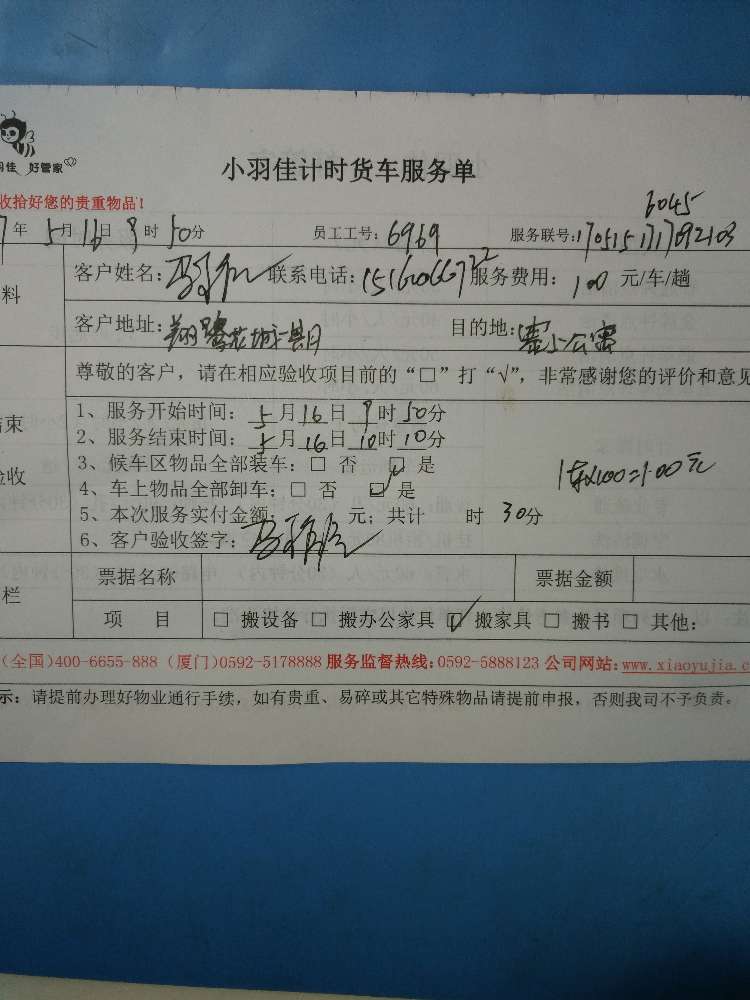 羽佳 好管家
小羽佳计时货车服务单
收拾好您的贵重物品!
6045
7年 5月16日 9时 50分 员工工号: 6969 服务联号:
料
客户姓名: 联系电话: 服务费用: 100 元/车/趟
客户地址: 翔鹭花城 目的地:
尊敬的客户,请在相应验收项目前的“□”打“√”,非常感谢您的评价和意见
结束
验收
1、服务开始时间: 5月16日9时50分
2、服务结束时间: 5月16日10时10分
3、候车区物品全部装车: □ 否 □ 是
4、车上物品全部卸车: □ 否 ☑ 是
1车X100=100元
5、本次服务实付金额: 元; 共计 时 30分
6、客户验收签字:
栏
票据名称 票据金额
项 目 □ 搬设备 □ 搬办公家具 ☑ 搬家具 □ 搬书 □ 其他:
(全国)400-6655-888 (厦门)0592-5178888 服务监督热线:0592-5888123 公司网站:www.xiaoyujia.c
示: 请提前办理好物业通行手续,如有贵重、易碎或其它特殊物品请提前申报,否则我司不予负责。